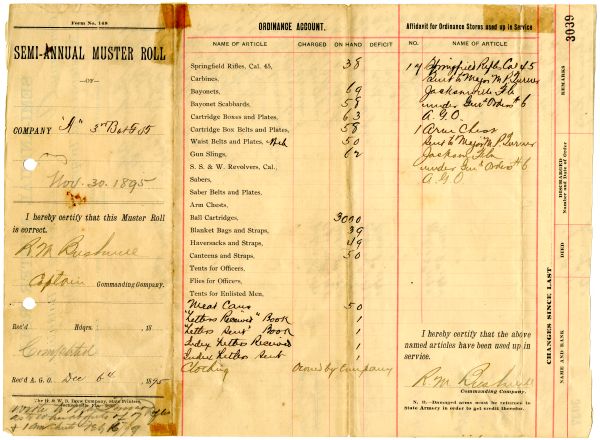 Form No. 149
SEMI-ANNUAL MUSTER ROLL
—OF—
COMPANY "A" 3rd Bat
Nov. 30. 1895
I hereby certify that this Muster Roll
is correct.
R M Bushnell
Captain
Commanding Company.
Rec'd Hdqrs. , 18
Completed
Rec'd A. G. O. Dec 6th, 1895
The H. & W. B. Drew Company, State Printers,
Jacksonville, Fla.
ORDINANCE ACCOUNT.
NAME OF ARTICLE CHARGED ON HAND DEFICIT
Springfield Rifles, Cal. 45, 38
Carbines,
Bayonets, 69
Bayonet Scabbards, 58
Cartridge Boxes and Plates, 63
Cartridge Box Belts and Plates, 58
Waist Belts and Plates, 50
Gun Slings, 62
S. S. & W. Revolvers, Cal.,
Sabers,
Saber Belts and Plates,
Arm Chests,
Ball Cartridges, 3000
Blanket Bags and Straps, 39
Haversacks and Straps, 49
Canteens and Straps, 50
Tents for Officers,
Flies for Officers,
Tents for Enlisted Men,
Meat Cans 50
"Letters Received" Book 1
"Letters Sent" Book 1
Index Letters Received 1
Index Letters Sent 1
Clothing owned by Company
Affidavit for Ordinance Stores used up in Service
NO. NAME OF ARTICLE
17 Springfield Rifles Cal 45
Sent to Major M. P. Turner
Jacksonville Fla
under Genl Orders # 6
A. G. O.
1 Arm Chest
Sent to Major M P Turner
Jackson Fla
under Genl Orders # 6
A. G. O
I hereby certify that the above
named articles have been used up in
service.
R. M. Bushnell
Commanding Company.
N. B.—Damaged arms must be returned to
State Armory in order to get credit therefor.
3039
REMARKS
DISCHARGED
Number and Date of Order
DIED
CHANGES SINCE LAST
NAME AND RANK